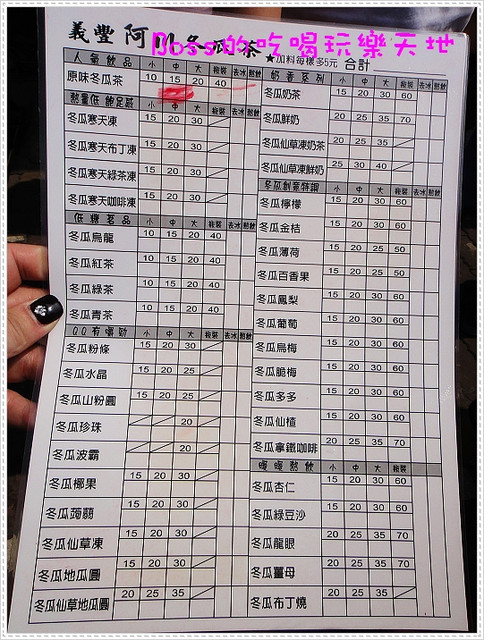 義豐 阿川冬瓜茶
Boss的吃喝玩樂天地
★加料每樣多5元 合計
人氣飲品 小 中 大 瓶裝 去冰 熱飲
原味冬瓜茶 10 15 20 40
熱量低 飽足感 小 中 大 瓶裝 去冰 熱飲
冬瓜寒天凍 15 20 30
冬瓜寒天布丁凍 15 20 30
冬瓜寒天綠茶凍 15 20 30
冬瓜寒天咖啡凍 15 20 30
低糖茗品 小 中 大 瓶裝 去冰 熱飲
冬瓜烏龍 10 15 20 40
冬瓜紅茶 10 15 20 40
冬瓜綠茶 10 15 20 40
冬瓜青茶 10 15 20 40
QQ有嚼勁 小 中 大 瓶裝 去冰 熱飲
冬瓜粉條 15 20 30
冬瓜水晶 15 20 25
冬瓜山粉圓 15 20 25
冬瓜珍珠 20
冬瓜波霸 20
冬瓜椰果 15 20 30
冬瓜蒟蒻 15 20 30
冬瓜仙草凍 15 20 30
冬瓜地瓜圓 15 20 30
冬瓜仙草地瓜圓 20 25 35
奶香系列 小 中 大 瓶裝 去冰 熱飲
冬瓜奶茶 15 20 30 60
冬瓜鮮奶 20 25 35 70
冬瓜仙草凍奶茶 20 25 35
冬瓜仙草凍鮮奶 25 30 40
冬瓜創意特調 小 中 大 瓶裝 去冰 熱飲
冬瓜檸檬 15 20 30 60
冬瓜金桔 15 20 30 60
冬瓜薄荷 15 20 25 50
冬瓜百香果 15 20 25 50
冬瓜鳳梨 15 20 30 60
冬瓜葡萄 15 20 30 60
冬瓜烏梅 15 20 30 60
冬瓜脆梅 15 20 30 60
冬瓜多多 15 20 30 60
冬瓜仙楂 15 20 30 60
冬瓜拿鐵咖啡 20 25 35 70
暖暖熱飲 小 中 大 瓶裝 去冰 熱飲
冬瓜杏仁 15 20 30 60
冬瓜綠豆沙 15 20 30 60
冬瓜龍眼 20 25 35 70
冬瓜薑母 20 25 35 70
冬瓜布丁燒 20 25 35 70